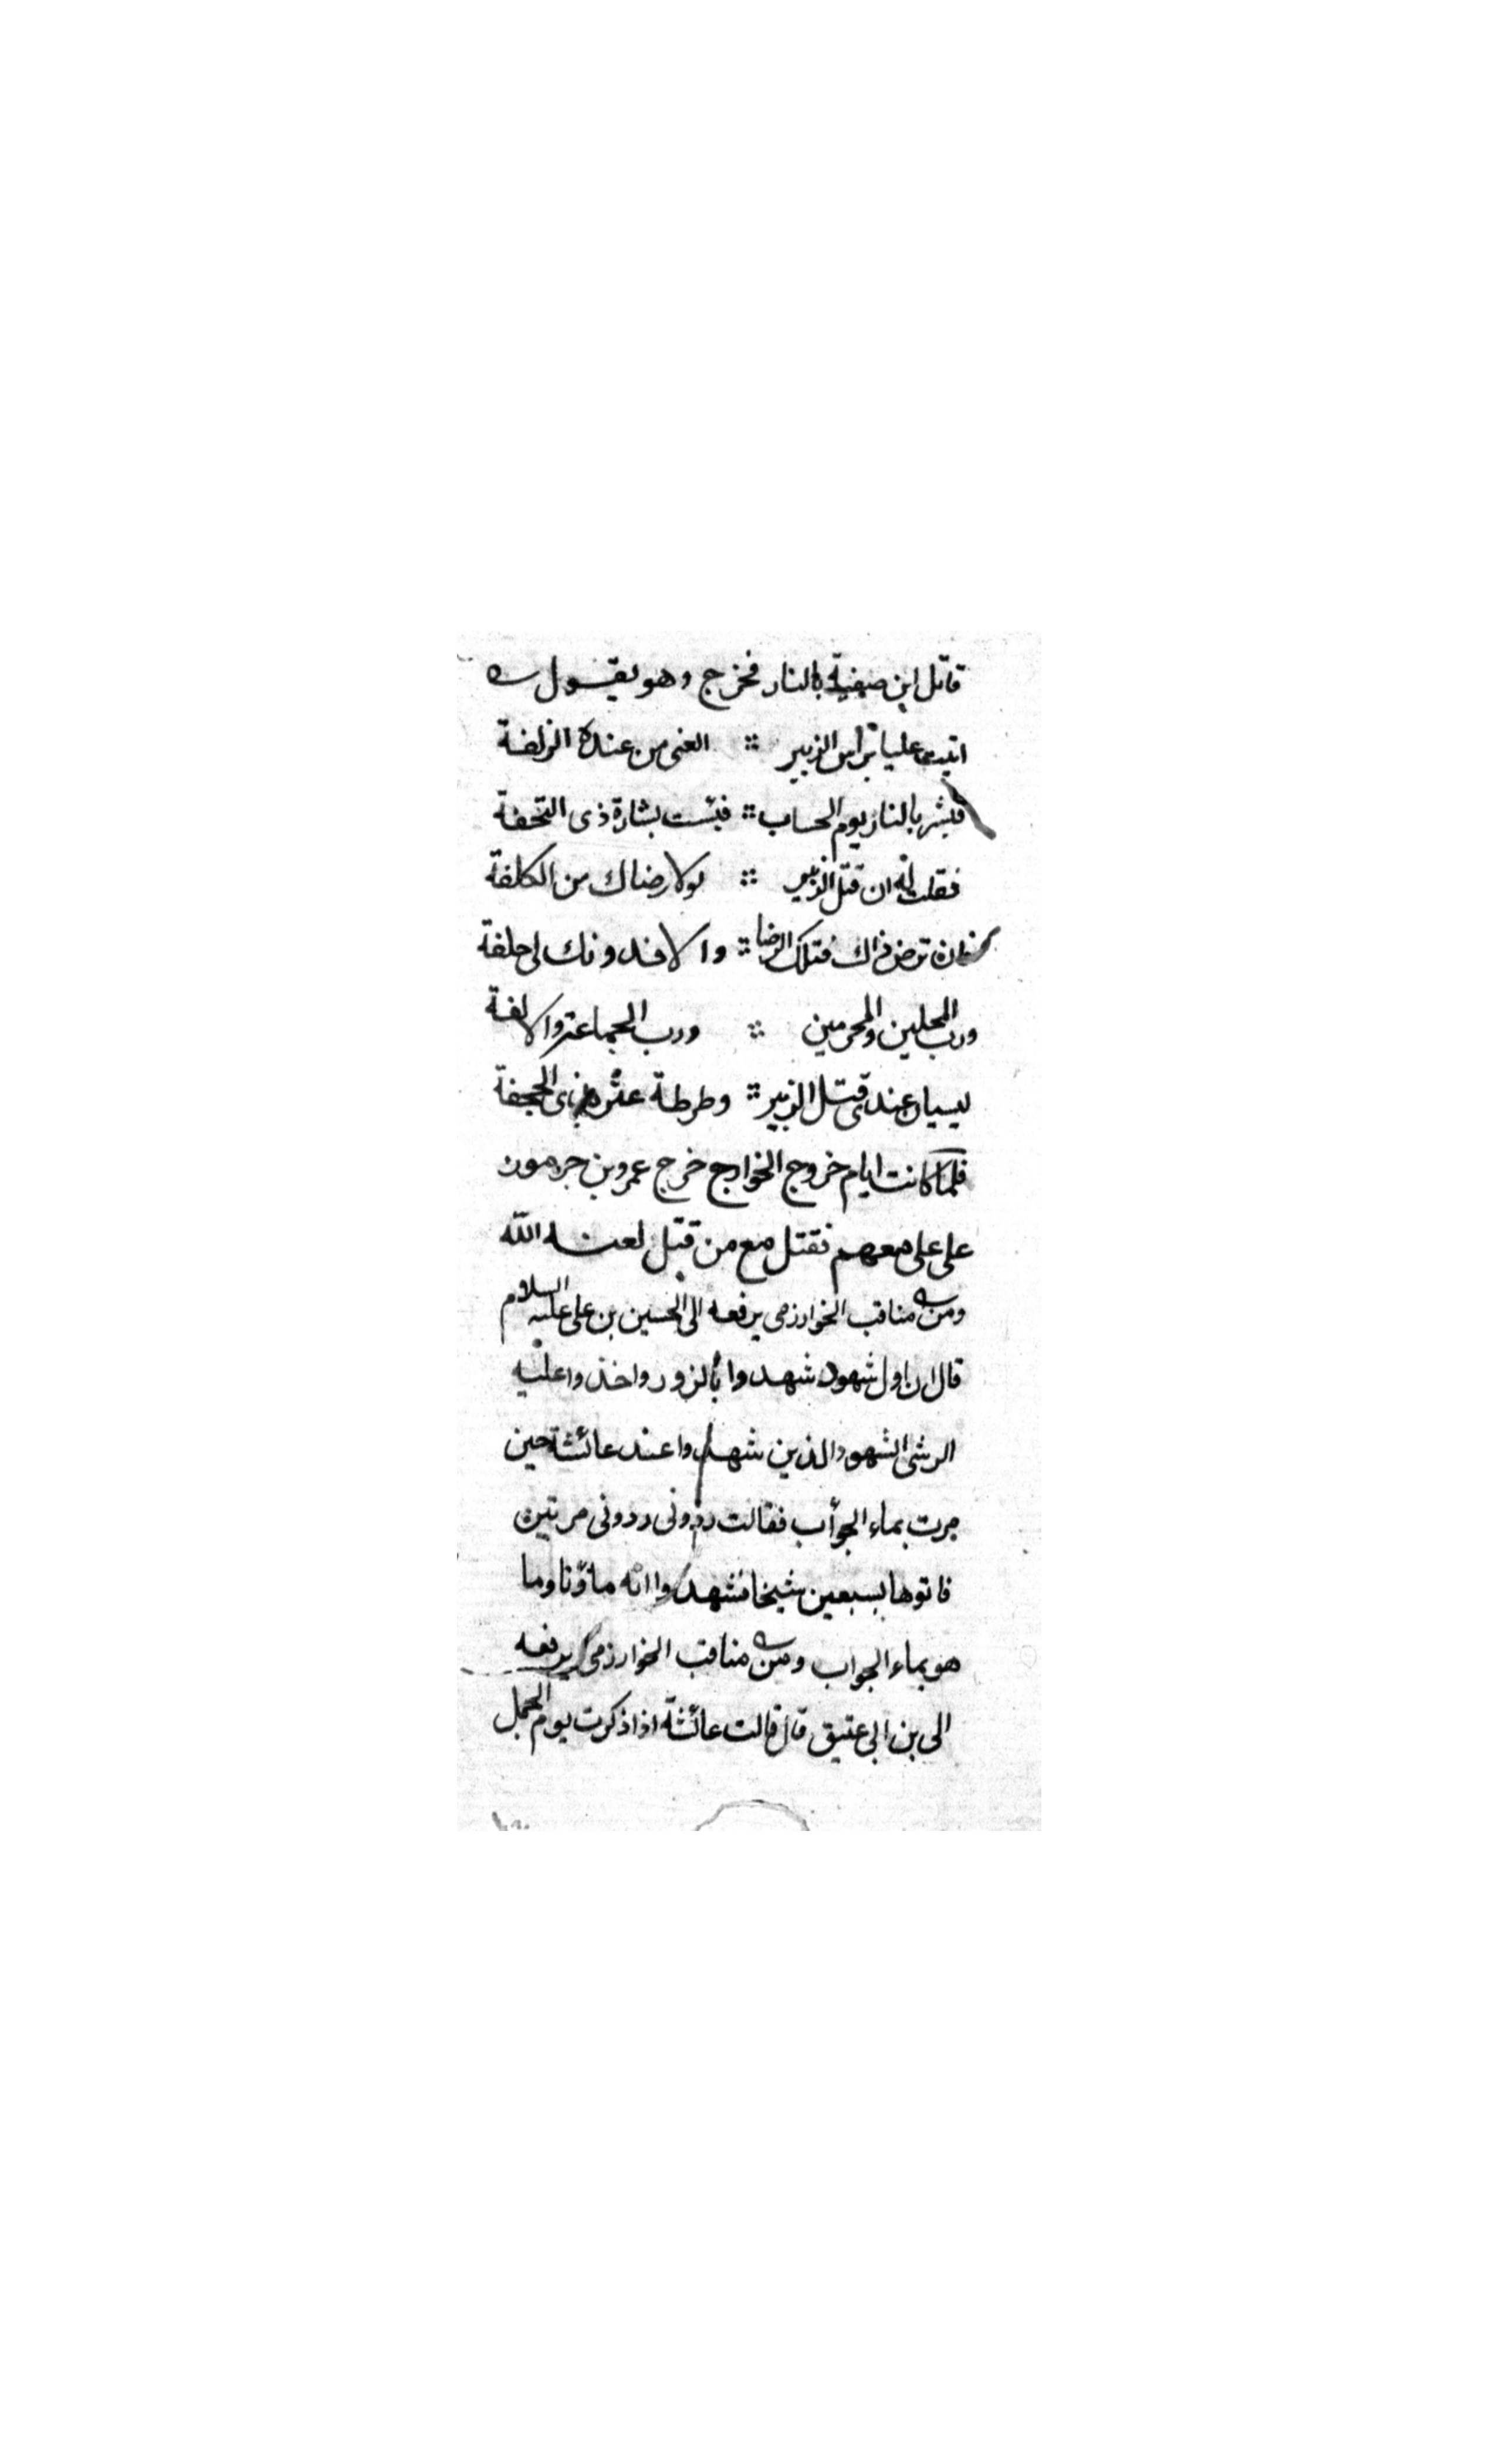 قاتل ابن صفية بالنار فخرج وهو يقول
اتيت عليا براس الزبير ∴ ابغى من عنده الزلفة
فبشر بالنار يوم الحساب ∴ فبئست بشارة ذى التحفة
فقلت له ان قتل الزبير ∴ لولا رضاك من الكلفة
فان ترض ذاك فتلك الرضا ∴ والا فدونك لى حلفة
ورب المحلين والمحرمين ∴ ورب الجماعة والالفة
ليسيان عندى قتل الزبير ∴ وطرطة عنز بذى الجحفة
فلما كانت ايام خروج الخوارج خرج عمرو بن جرموز
على على معهم فقتل مع من قتل لعنه الله
ومن مناقب الخوارزمى يرفعه الى الحسين بن على عليه السلام
قال ان اول شهود شهدوا بالزور واخذوا عليه
الرشى الشهود الذين شهدوا عند عائشة حين
مرت بماء الحوأب فقالت ردونى ردونى مرتين
فاتوها بسبعين شيخا فشهدوا انه ماؤنا وما
هو بماء الحواب ومن مناقب الخوارزمى يرفعه
الى بن ابى عتيق قال قالت عائشة اذا ذكرت يوم الجمل